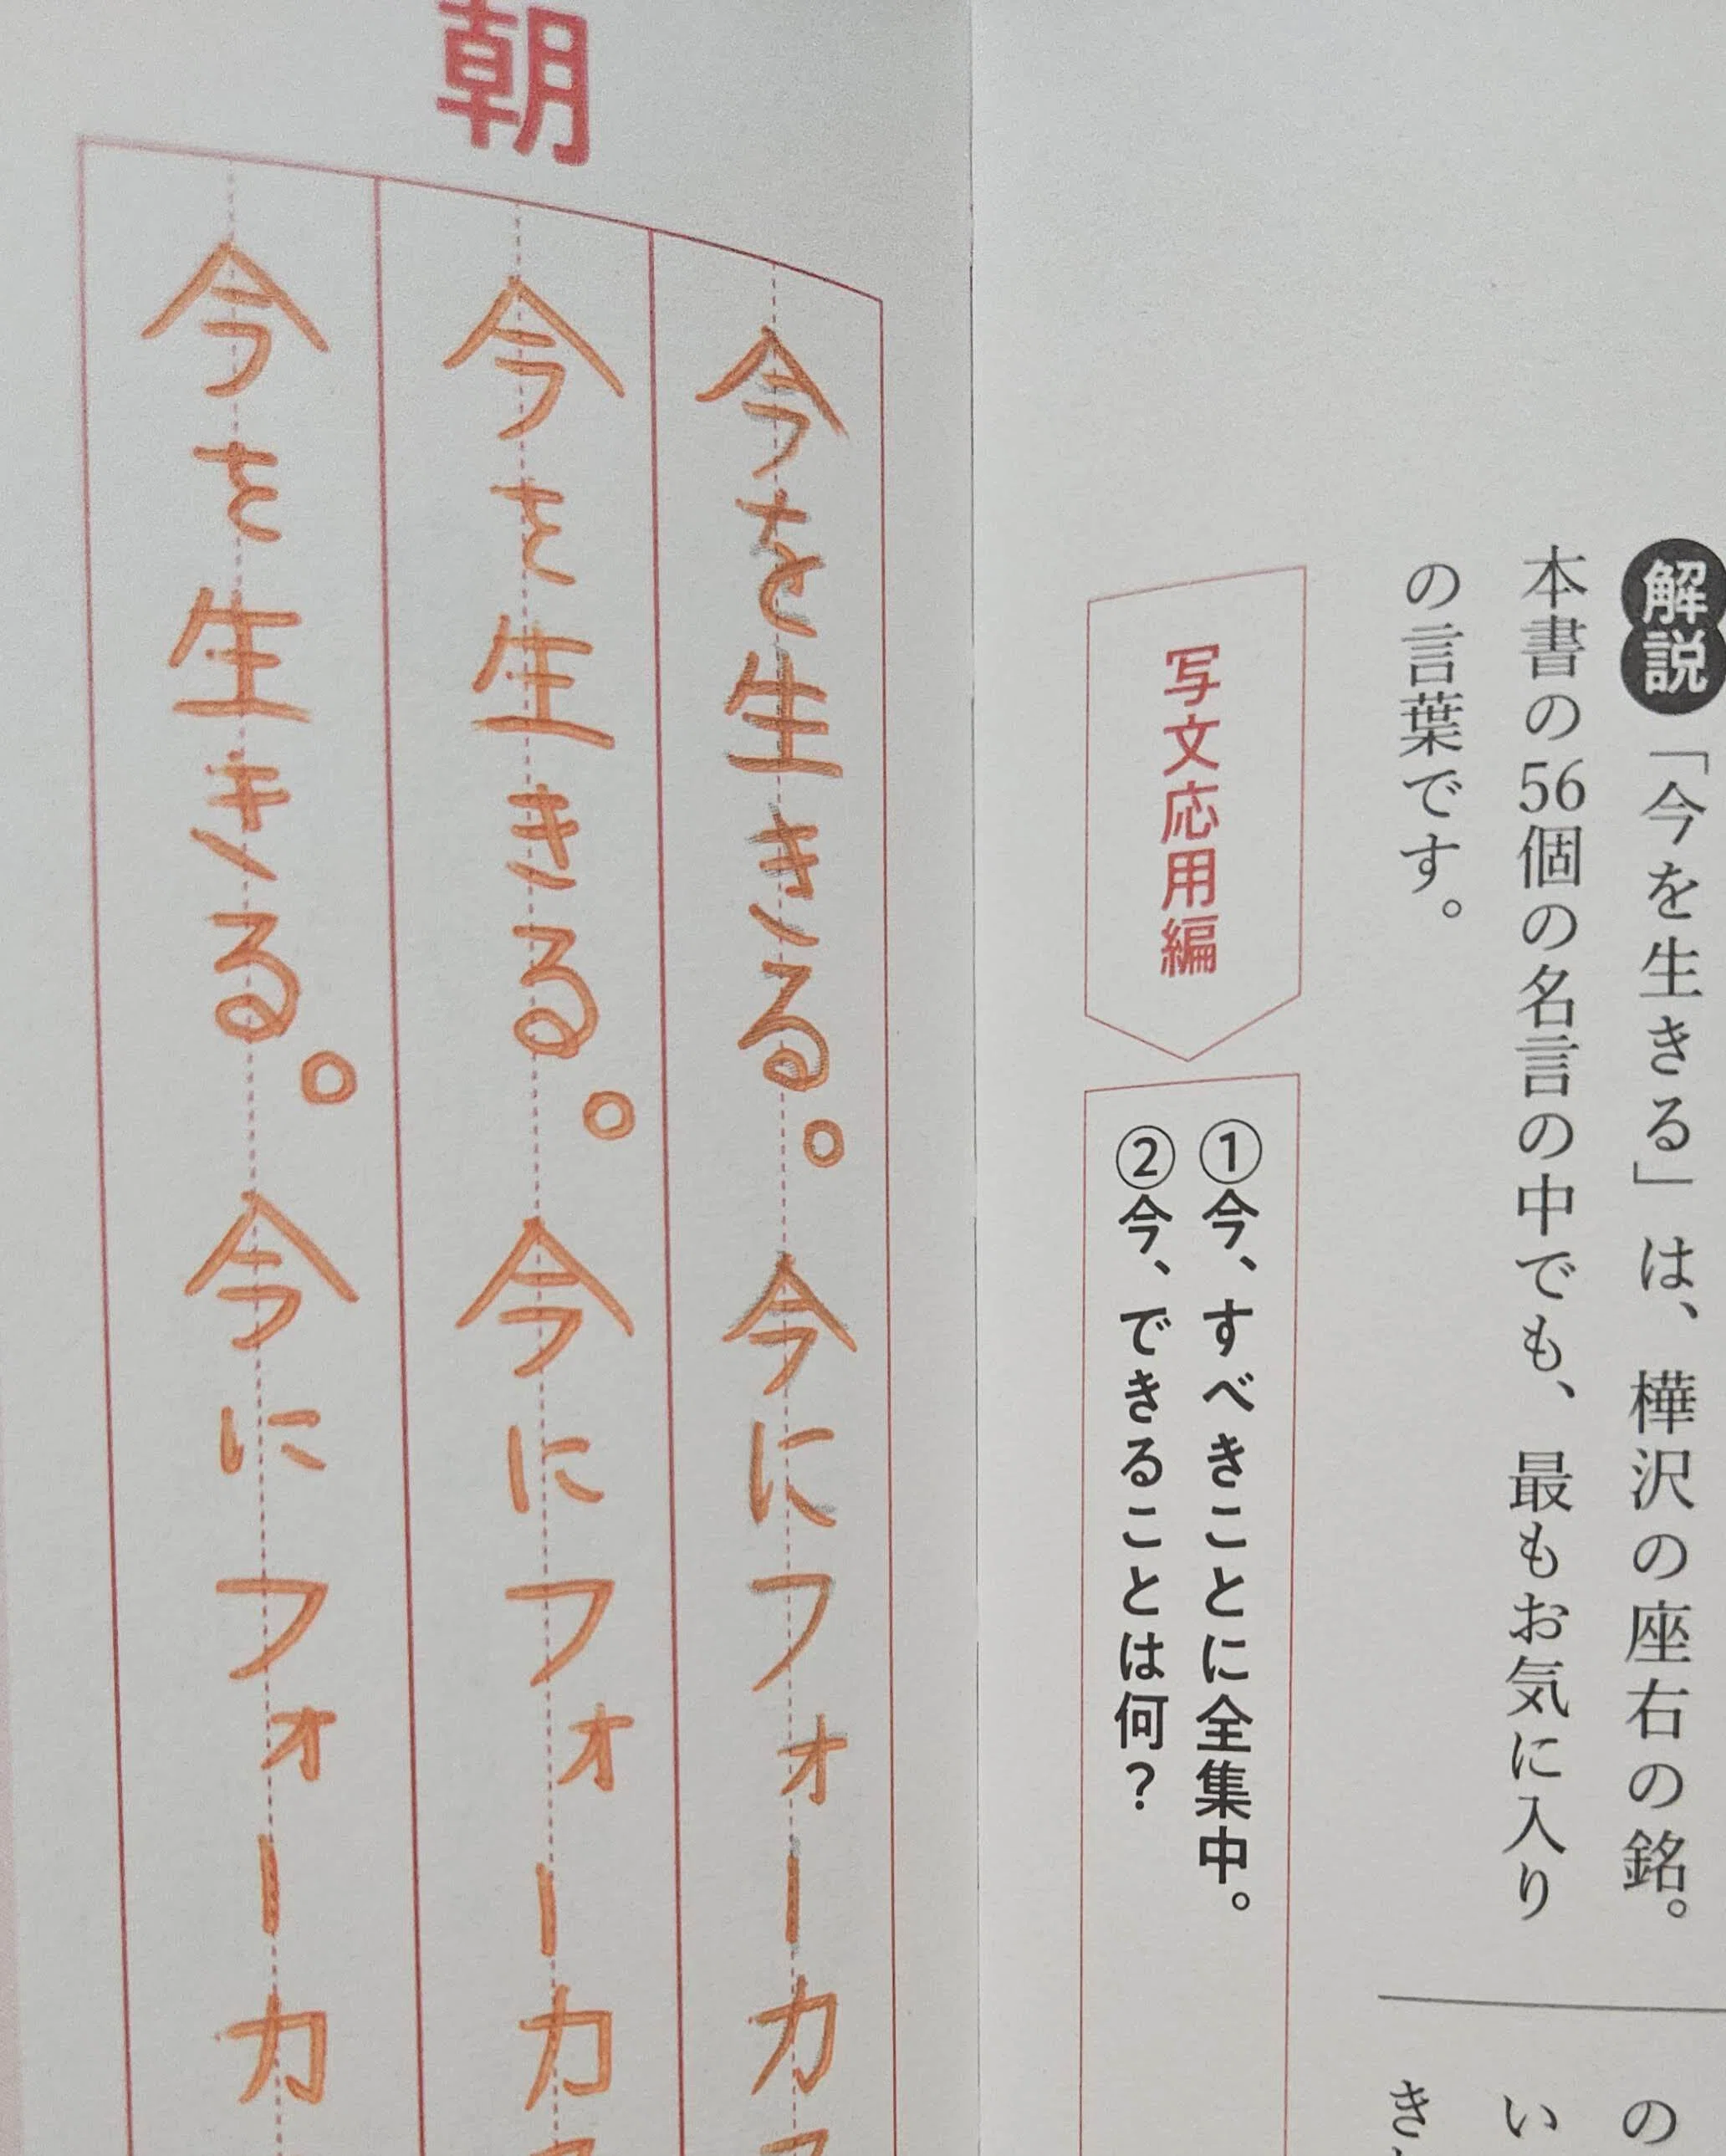 解説「今を生きる」は、樺沢の座右の銘。
本書の56個の名言の中でも、最もお気に入り
の言葉です。
の
い
き
写文応用編
①今、すべきことに全集中。
②今、できることは何?
朝
今を生きる。今にフォーカ
今を生きる。今にフォーカ
今を生きる。今にフォーカ